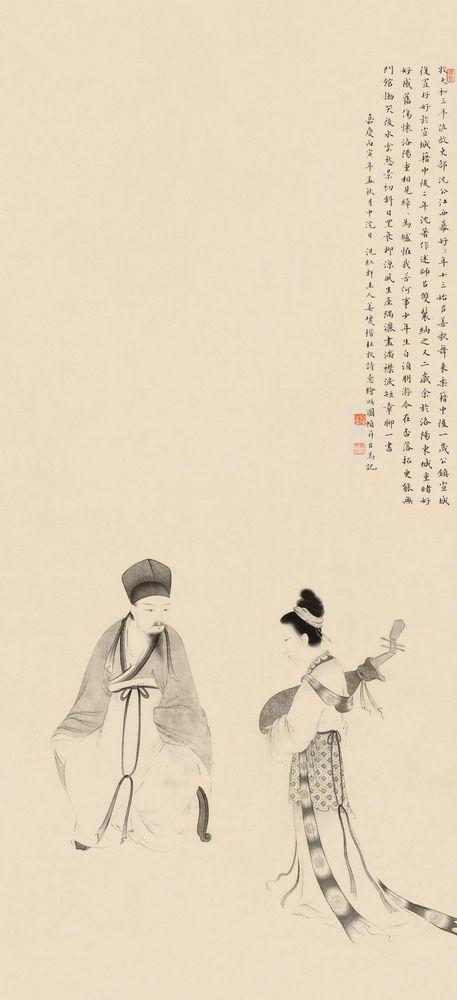 牧大和三年佐故吏部沈公江西幕好好年十三始以善歌舞來樂籍中後一歲公鎮宣城
復置好好於宣城籍中後二年沈著作述師以雙鬟納之又二歲余於洛陽東城重睹好
好感舊傷懷洛陽重相見綽綽為當壚怪我苦何事少年生白鬚朋游今在否落拓更能無
門館慟哭後水雲愁景初斜日罣衰柳涼風生座隅灑盡滿襟淚短章聊一書
嘉慶丙寅年孟秋月中浣日 洗紅軒主人姜壎楷杜牧詩意繪此圖幀并以為記